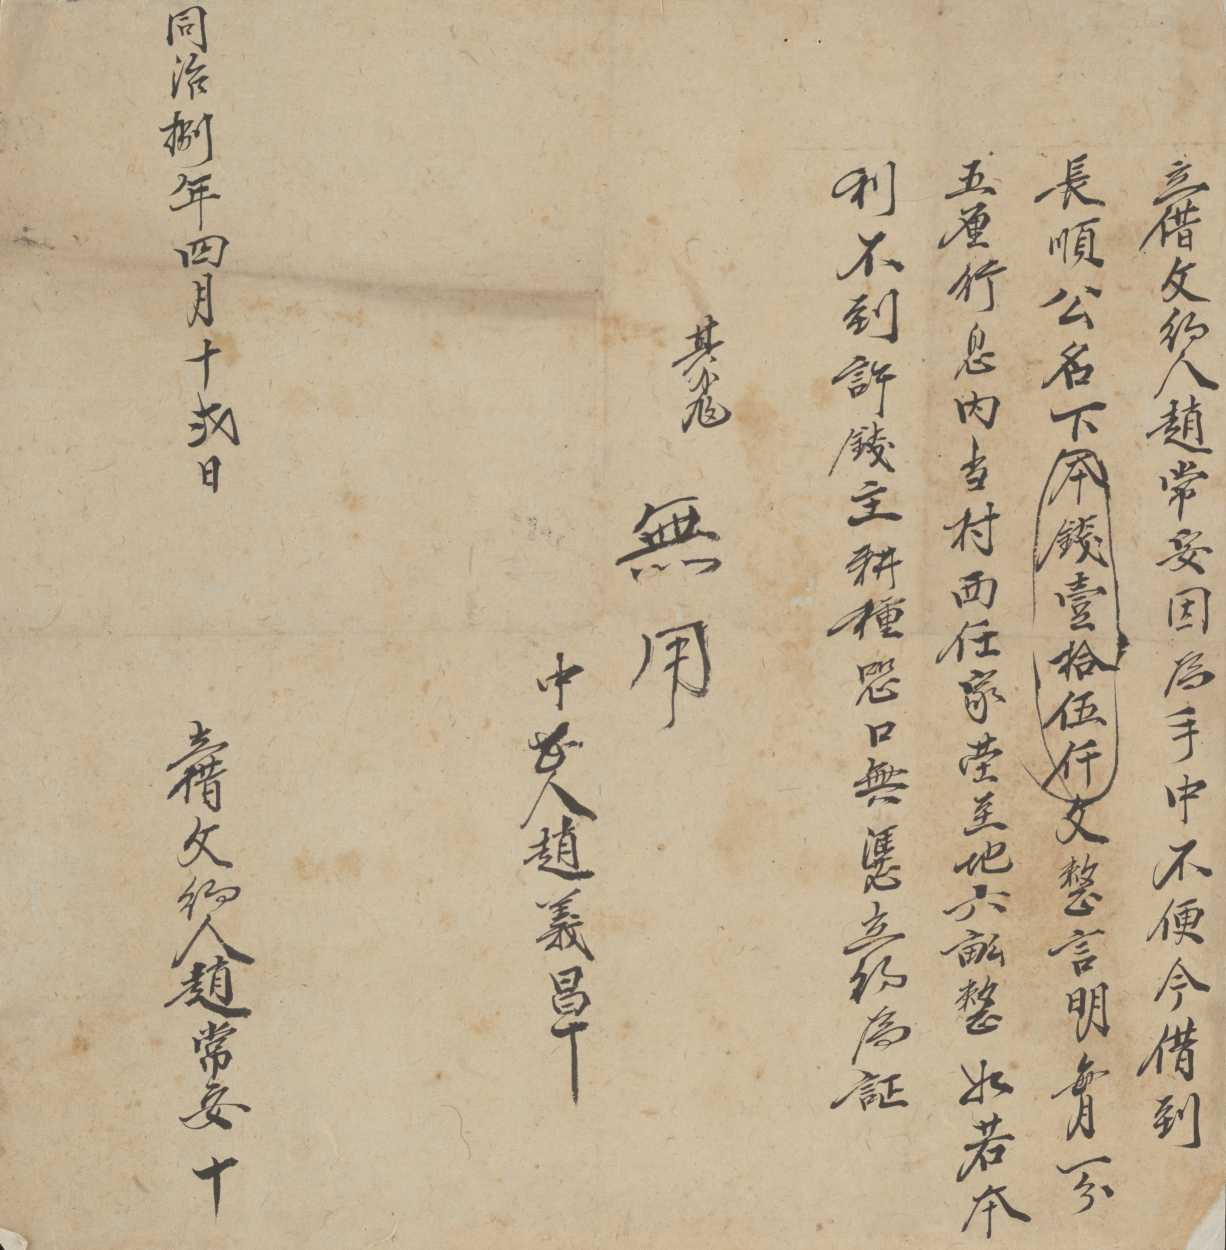 立借文約人趙常妥因為手中不便今借到
長順公名下本錢壹拾伍仟文整言明每月一分
五厘行息內当村西任家塋至地六畝整如若本
利不到許錢主耕種恐口無憑立約為証
無用
中証人趙義昌十
同治捌年四月十弍日
立借文約人趙常妥十